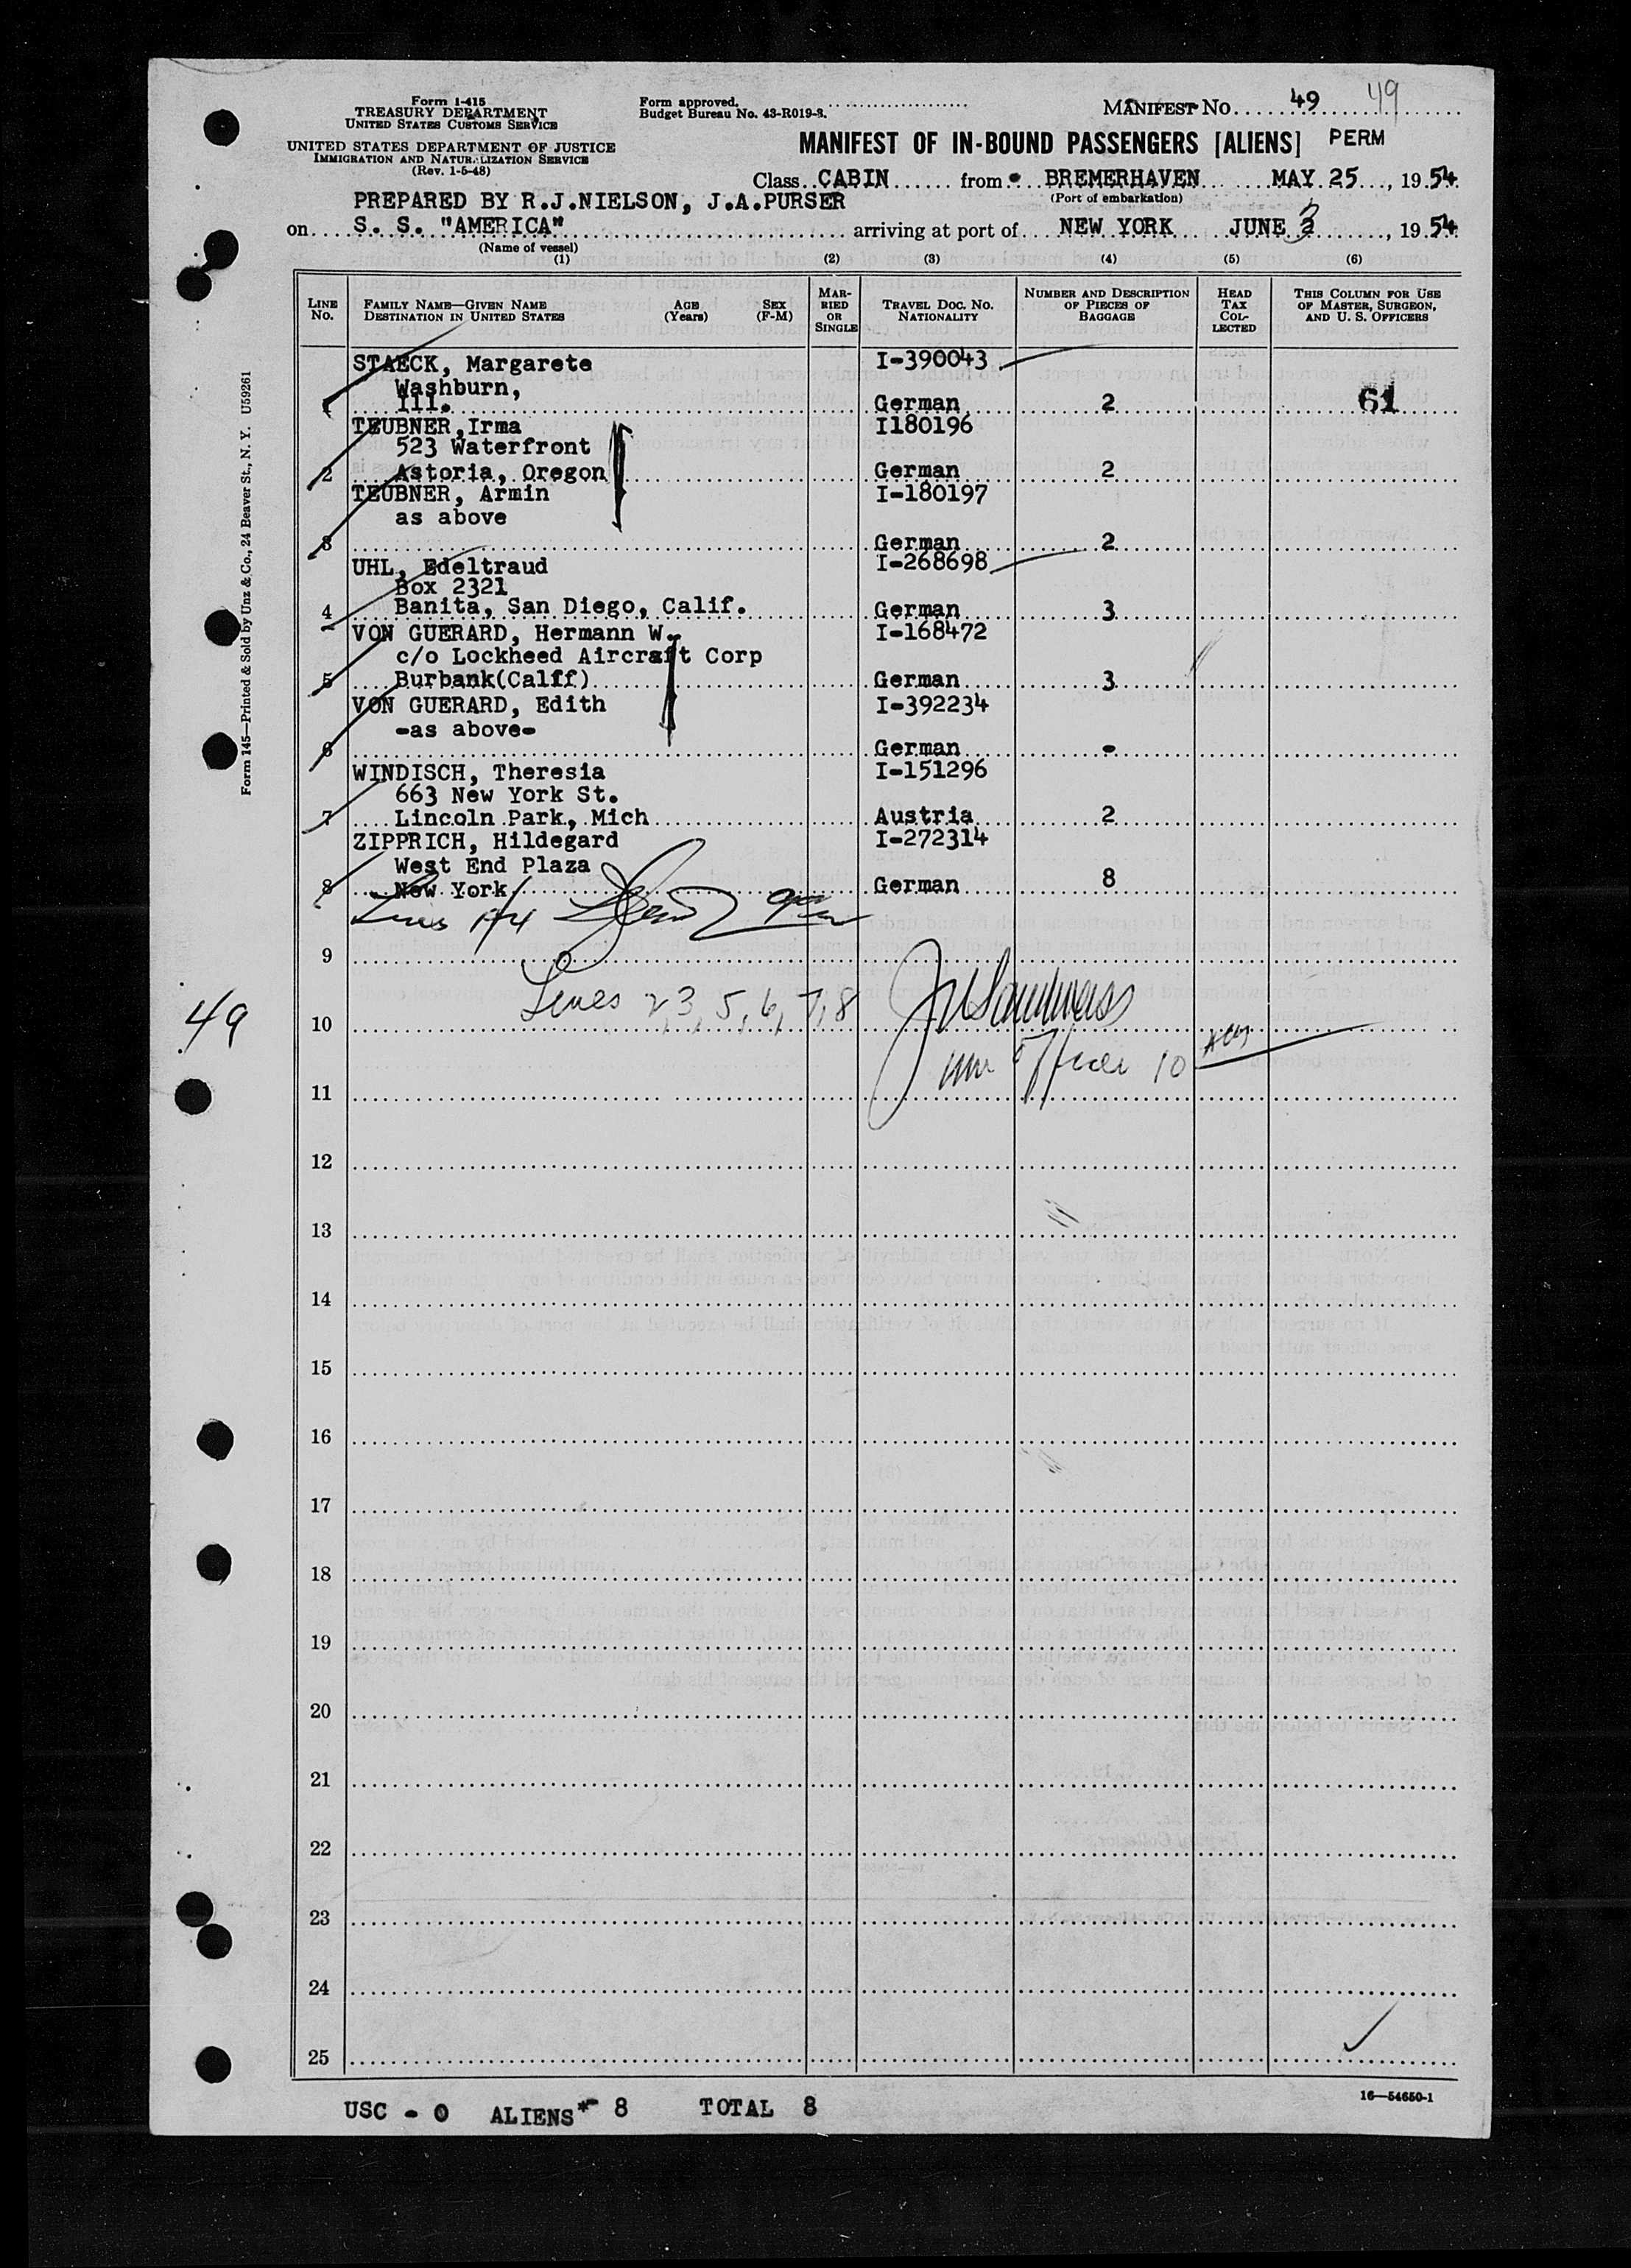 Form I-415
TREASURY DEPARTMENT
UNITED STATES CUSTOMS SERVICE
UNITED STATES DEPARTMENT OF JUSTICE
IMMIGRATION AND NATURALIZATION SERVICE
(Rev. 1-5-48)
Form approved.
Budget Bureau No. 43-R019-3.
MANIFEST NO. 49 49
MANIFEST OF IN-BOUND PASSENGERS [ALIENS] PERM
Class CABIN from BREMERHAVEN MAY 25, 1954
(Port of embarkation)
PREPARED BY R.J.NIELSON, J.A.PURSER
on S. S. "AMERICA" arriving at port of NEW YORK JUNE 3, 1954
(Name of vessel)
(1) (2) (3) (4) (5) (6)
LINE NO. FAMILY NAME—GIVEN NAME DESTINATION IN UNITED STATES AGE (Years) SEX (F-M) MARRIED OR SINGLE TRAVEL DOC. NO. NATIONALITY NUMBER AND DESCRIPTION OF PIECES OF BAGGAGE HEAD TAX COLLECTED THIS COLUMN FOR USE OF MASTER, SURGEON, AND U. S. OFFICERS
STAECK, Margarete I-390043
Washburn,
1 Ill. German 2 61
TEUBNER,Irma I180196
523 Waterfront
2 Astoria, Oregon German 2
TEUBNER, Armin I-180197
as above
3 German 2
UHL, Edeltraud I-268698
Box 2321
4 Banita, San Diego, Calif. German 3
VON GUERARD, Hermann W. I-168472
c/o Lockheed Aircraft Corp
5 Burbank(Calff) German 3
VON GUERARD, Edith I-392234
-as above-
6 German -
WINDISCH, Theresia I-151296
663 New York St.
7 Lincoln Park, Mich Austria 2
ZIPPRICH, Hildegard I-272314
West End Plaza
8 New York German 8
Lines 1+4
9
Lines 2,3,5,6,7,8
49
10
Imm Officer 10
11
12
13
14
15
16
17
18
19
20
21
22
23
24
25
USC - 0 ALIENS - 8 TOTAL 8
16—54650-1
Form 145—Printed & Sold by Unz & Co., 24 Beaver St., N. Y. U59261